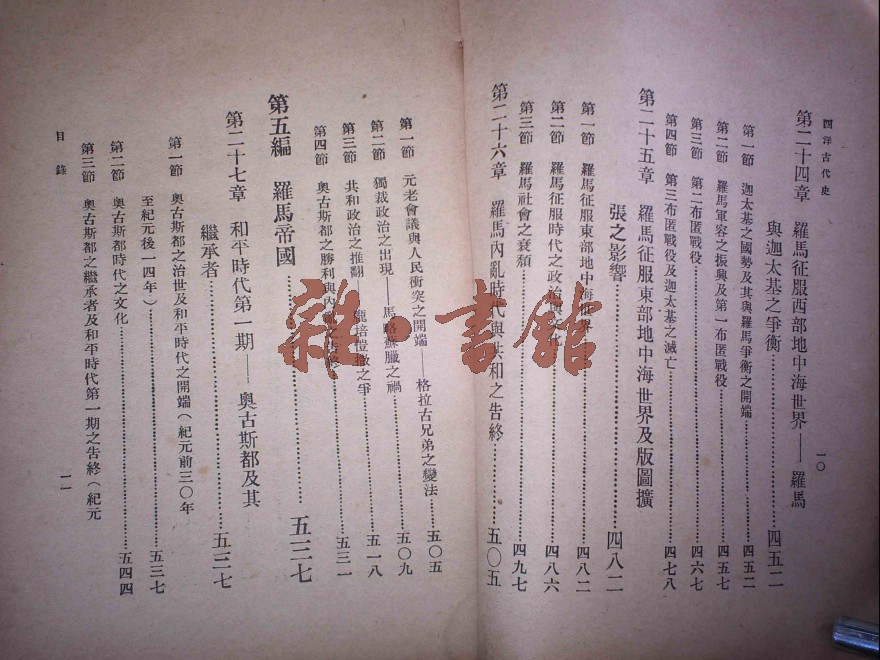 西洋古代史
一〇
第二十四章　羅馬征服西部地中海世界——羅馬
與迦太基之爭衡……四五二
第一節　迦太基之國勢及其與羅馬爭衡之開端……四五二
第二節　羅馬軍容之振興及第一布匿戰役……四五七
第三節　第二布匿戰役……四六七
第四節　第三布匿戰役及迦太基之滅亡……四七八
第二十五章　羅馬征服東部地中海世界及版圖擴
張之影響……四八二
第一節　羅馬征服東部地中海世界……四八二
第二節　羅馬征服時代之政治與文化……四八六
第三節　羅馬社會之衰頹……四九七
第二十六章　羅馬內亂時代與共和之告終……五〇五
第一節　元老會議與人民衝突之開端——格拉古兄弟之變法……五〇五
第二節　獨裁政治之出現——馬略蘇臘之禍……五〇九
第三節　共和政治之推翻——龐培愷撒之爭……五一八
第四節　奧古斯都之勝利與內……五三一
第五編　羅馬帝國……五三七
第二十七章　和平時代第一期——奧古斯都及其
繼承者……五三七
第一節　奧古斯都之治世及和平時代之開端（紀元前三〇年
至紀元後一四年）……五三七
第二節　奧古斯都時代之文化……五四四
第三節　奧古斯都之繼承者及和平時代第一期之告終（紀元
目錄
一一
雜·書館